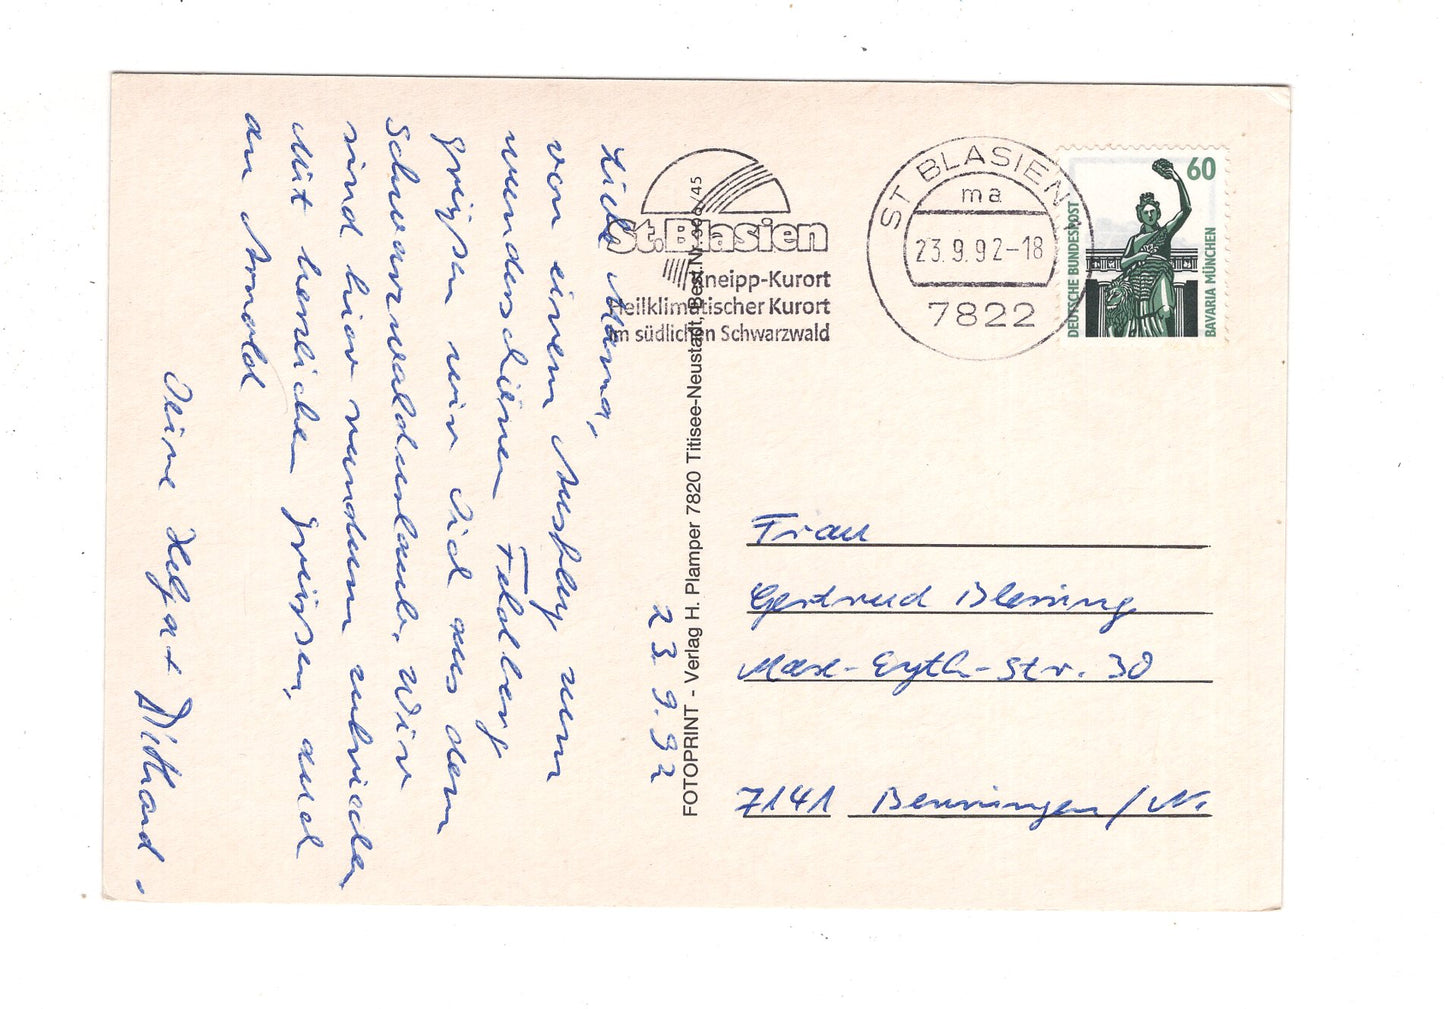 23.9.92
Liebe Mama,
von einem Ausflug zum
wunderschönen Feldberg
grüßen wir Dich aus dem
Schwarzwaldurlaub. Wir
sind hier rundum zufrieden
Mit herzlichen Grüßen, auch
an Arnold
Deine Helga + Dithard.
FOTOPRINT - Verlag H. Plamper 7820 Titisee-Neustadt, Best.Nr. /45
St.Blasien
Kneipp-Kurort
Heilklimatischer Kurort
im südlichen Schwarzwald
ST BLASIEN
ma
23.9.92-18
7822
60
DEUTSCHE BUNDESPOST
BAVARIA MÜNCHEN
Frau
Gertrud Blessing
Max-Eyth-Str. 30
7141 Benningen/N.